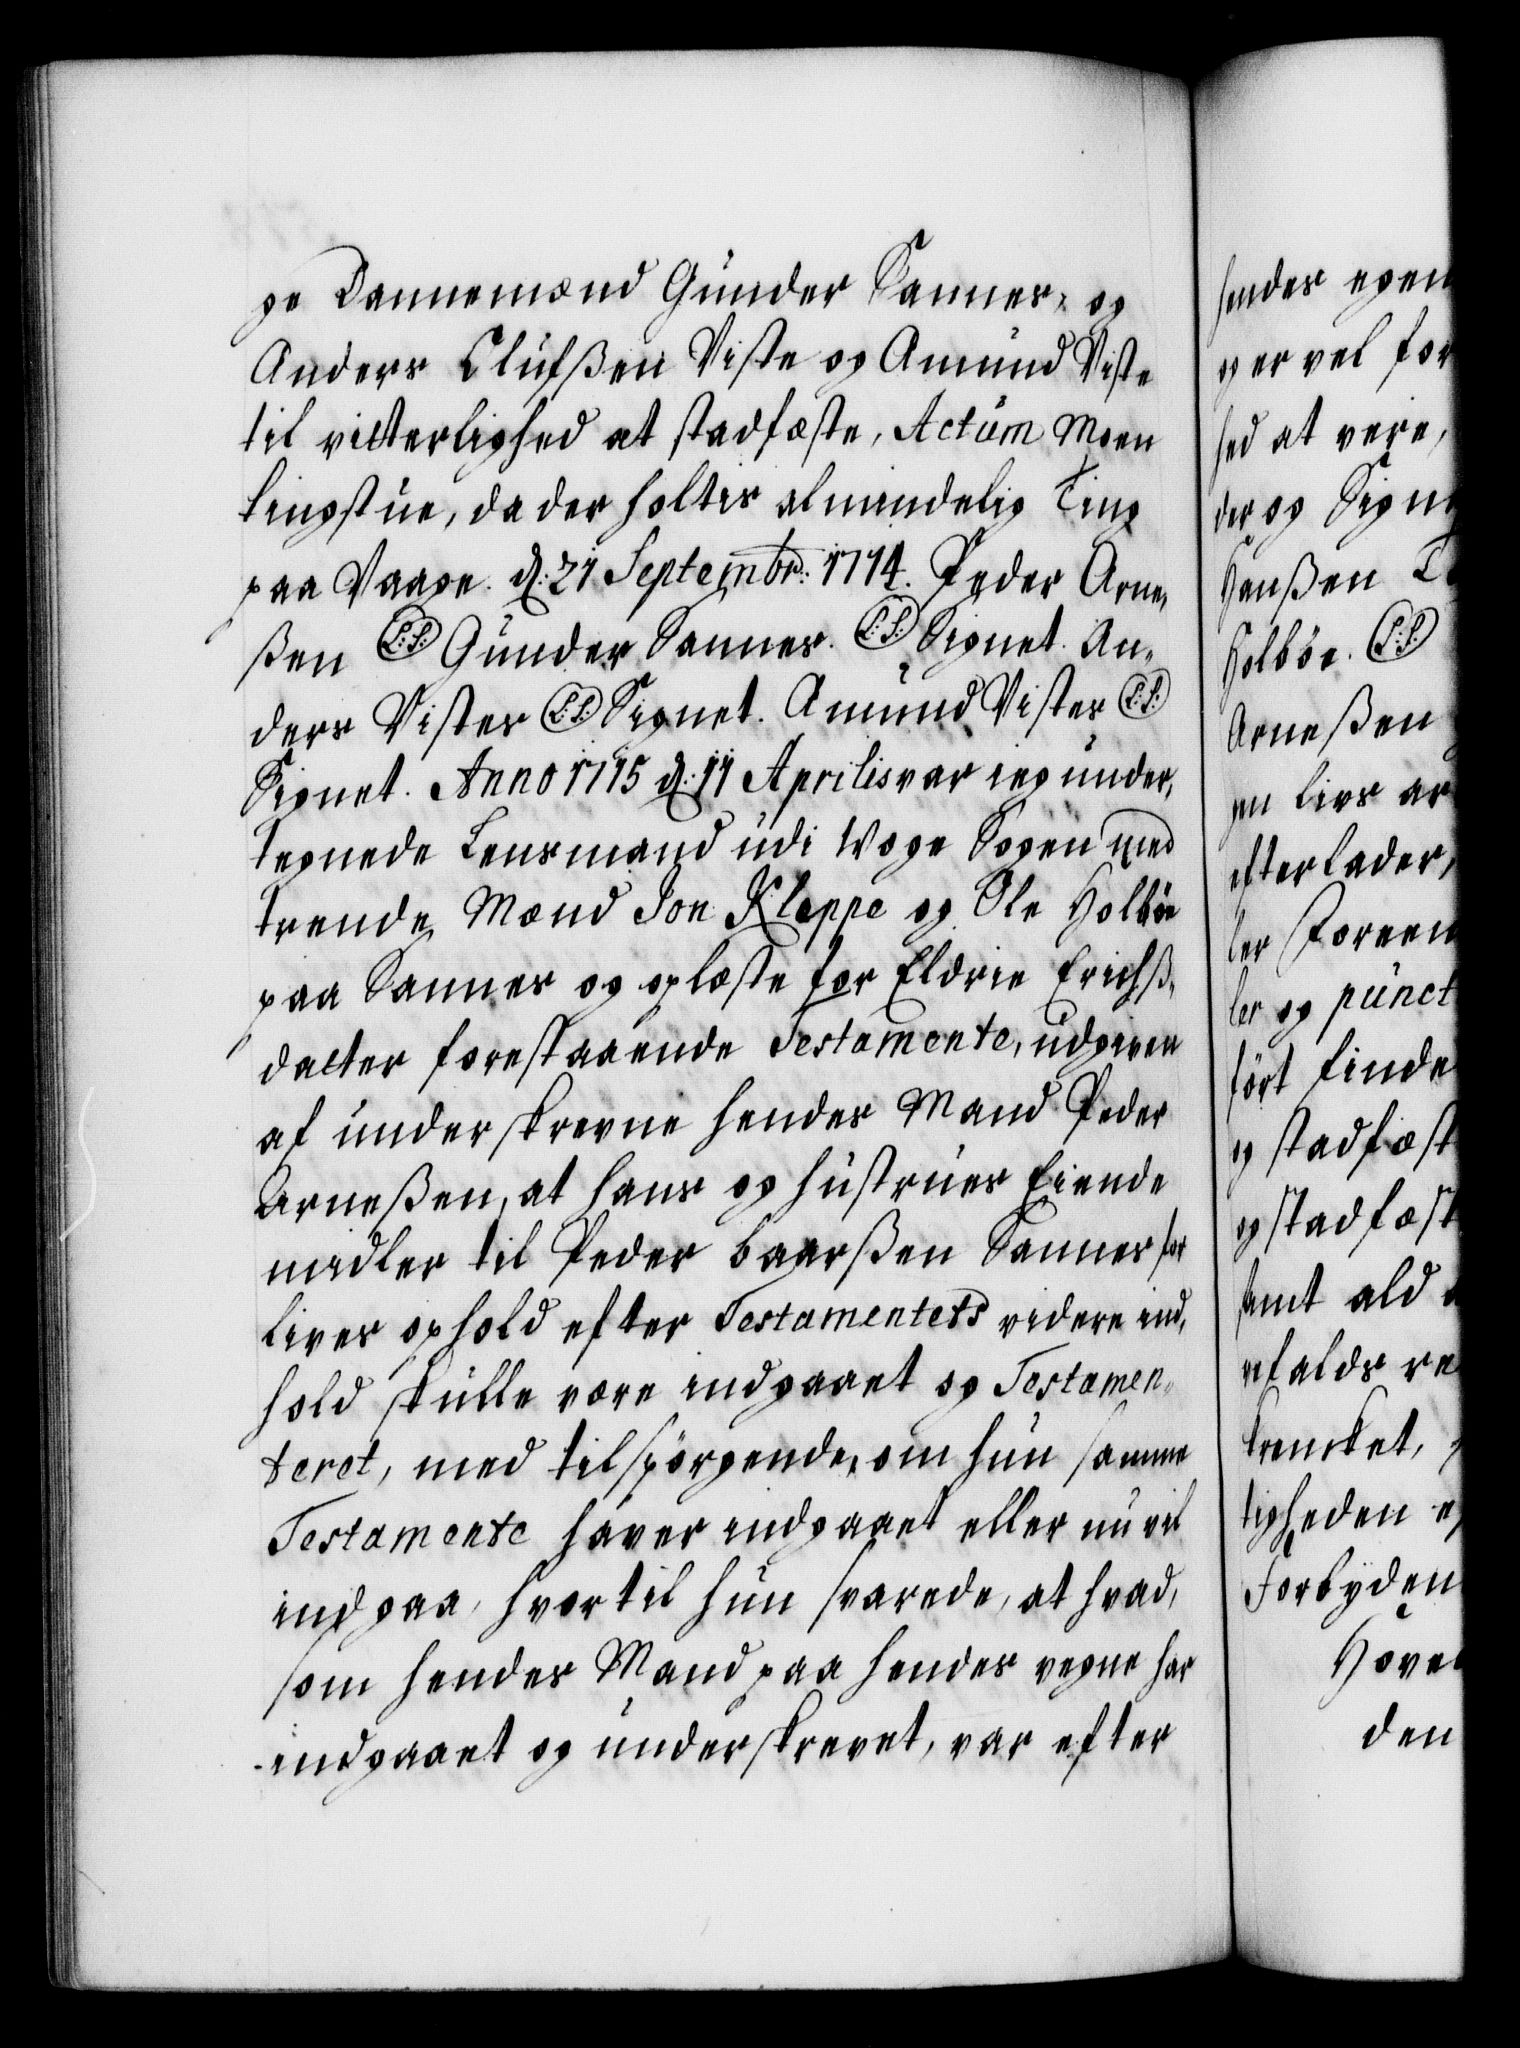 ge Dannemænd Gunder Sannes, og
Anders Olufßen Viste og Amund Viste
til vitterlighed at stadfæste, Actum Moen
tingstue, da der holtis almindelig Ting
paa Vaage. d: 21 Septembr: 1714. Peder Arne,
ßen (L:S:) Gunder Sannes. (L:S:) Signet. An,
ders Vistes (L:S:) Signet. Amund Vistes (L:S:)
Signet. Anno 1715 d: 11 Aprilis var ieg under,
tegnede Lensmand udi Woge Sogen med
trende Mænd Jon Kleppe og Ole Holböe
paa Sannes og oplæste for Eldrie Erichß,
datter forestaaende Testamente, udgiven
af underskrevne hendes Mand Peder
Arneßen, at hans og hustrues Eiende
midler til Peder baarßen Sannes for
lives ophold efter Testamentets videre ind,
hold skulle være indgaaet og Testamen,
teret, med tilspörgende, om hun samme
Testamente haver indgaaet eller nu vil
indgaa, hvortil hun svarede, at hvad,
som hendes Mand paa hendes vegne har
indgaaet og underskrevet, var efter
hendes egen
og er vel for
hed at vere,
der og Sign
Hanßen
Holböe. (L:S:)
Arneßen
gen livs ar
efterlader,
ler Foreen
ler og punct
fört finde
og stadfæst
og stadfæst
samt ald
refalds re
krencket,
tigheden
Forbyden
Hove
den